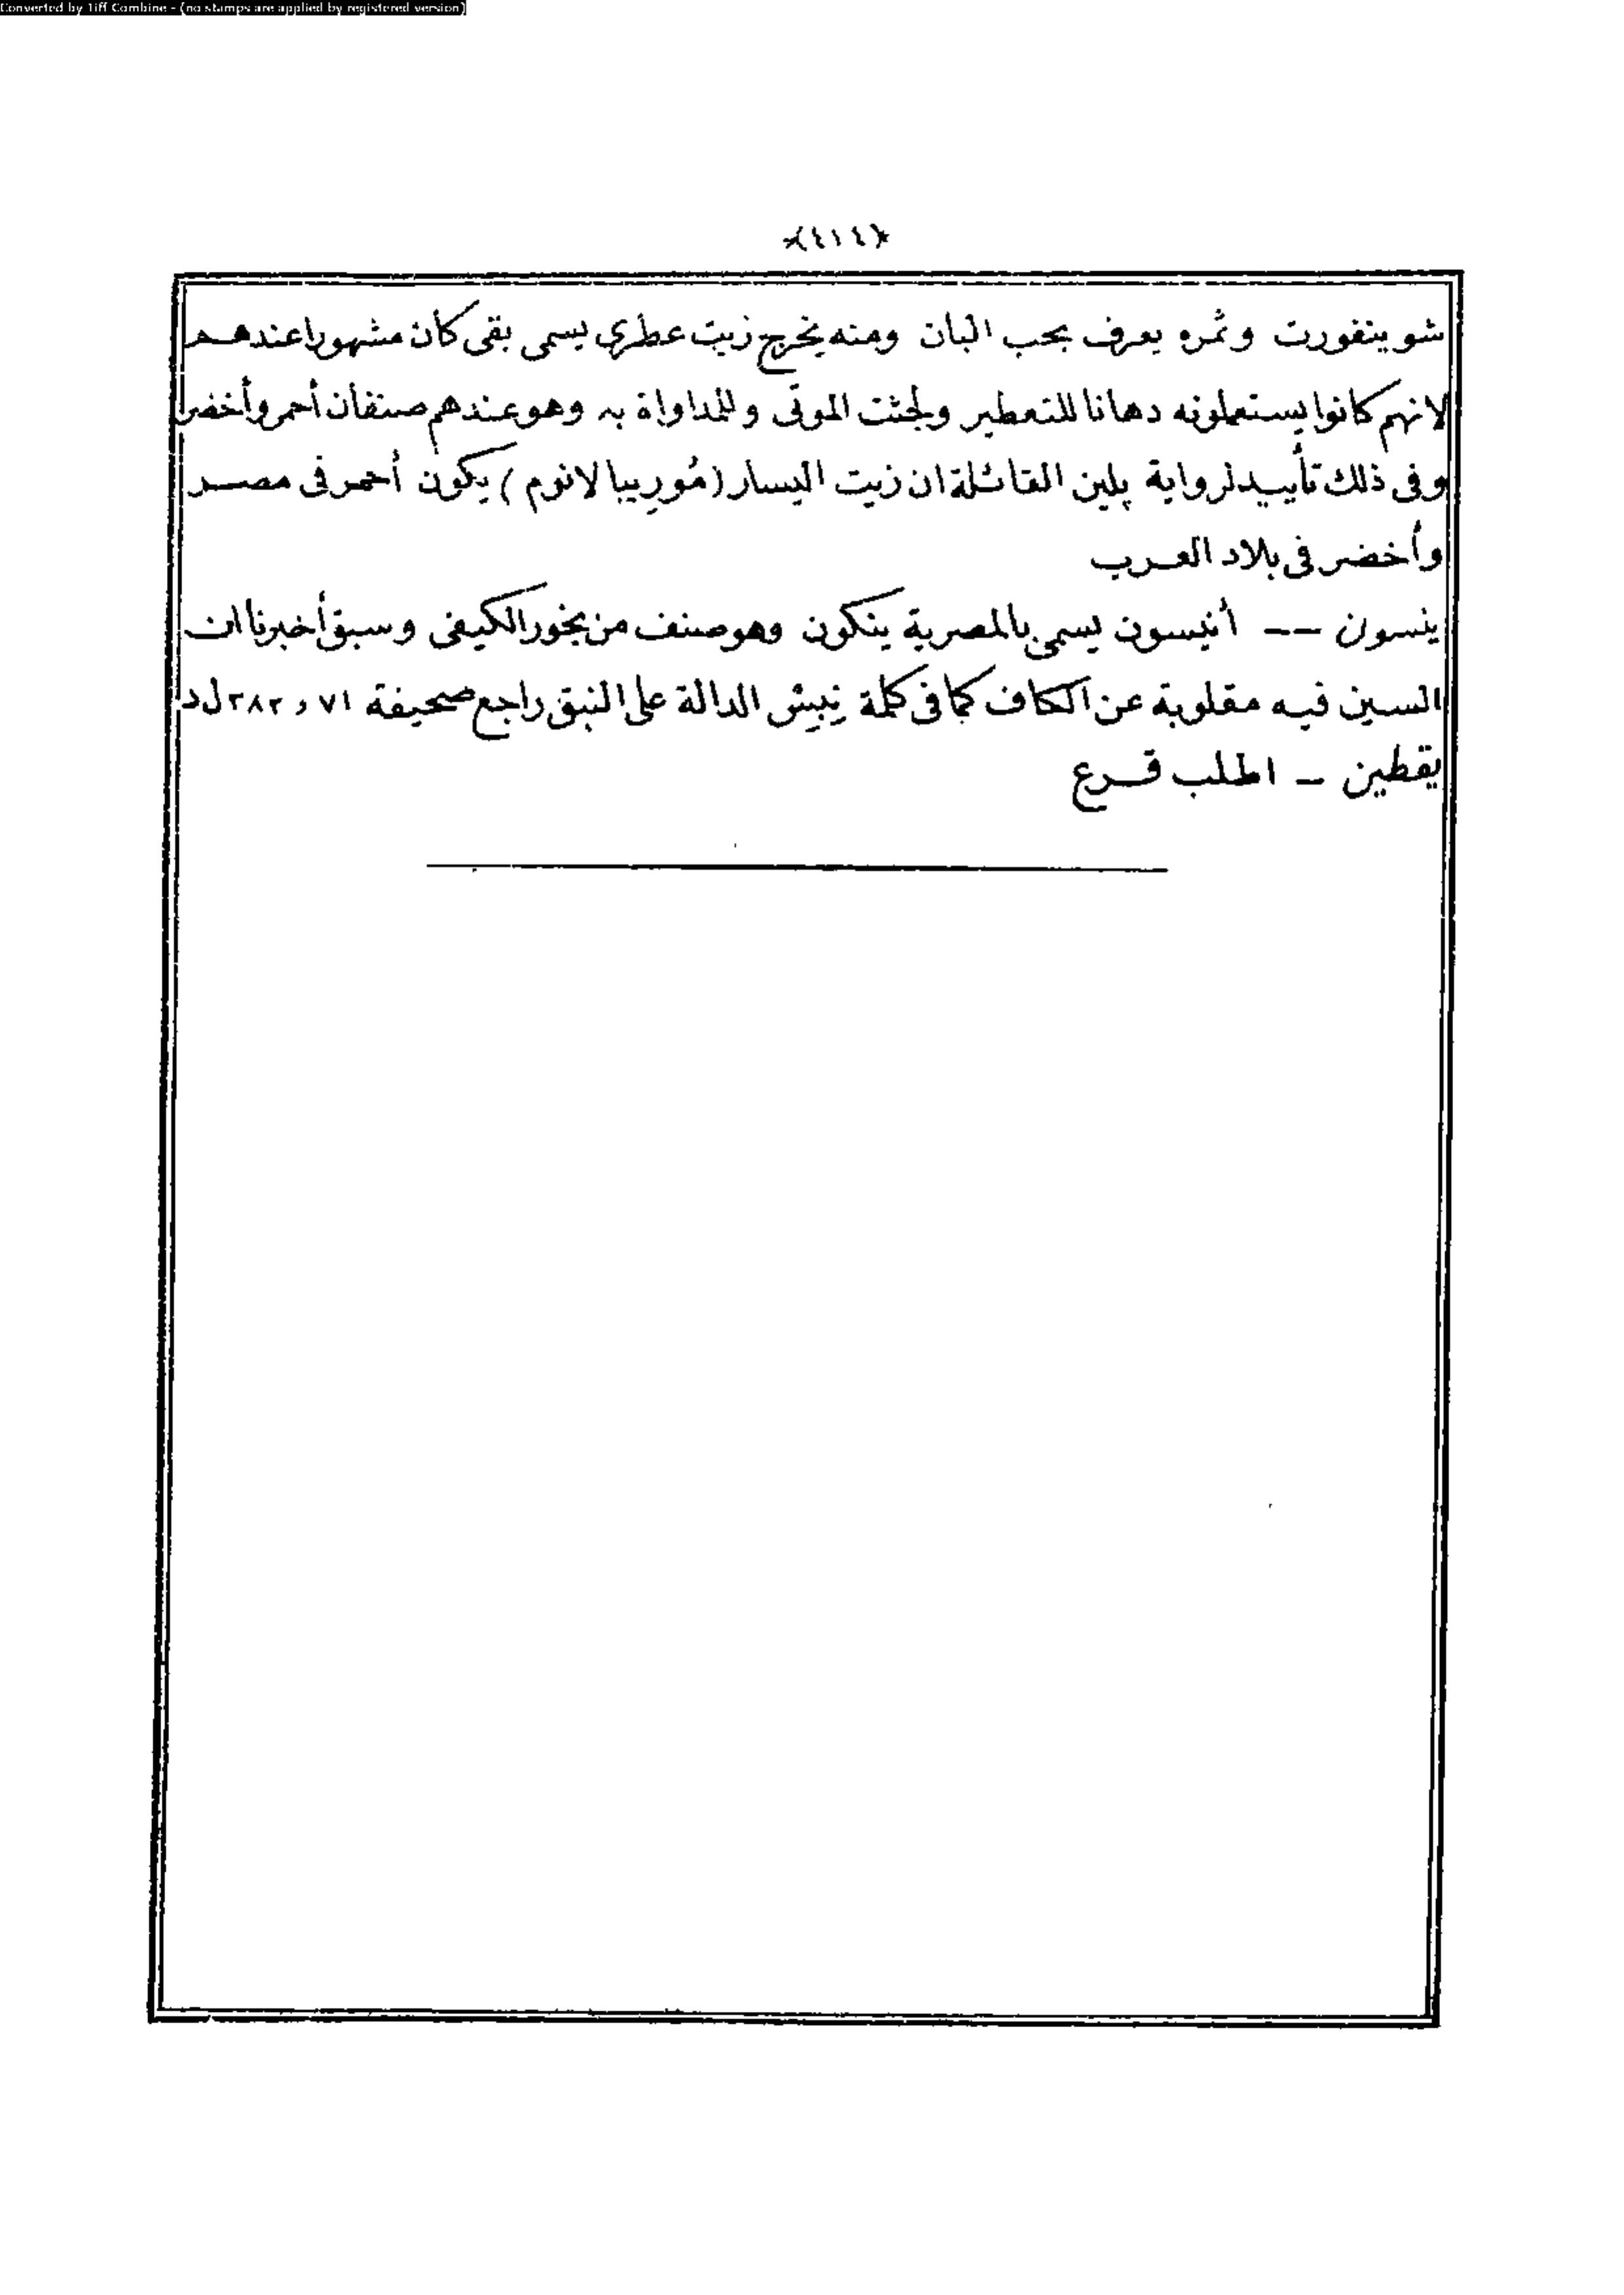 Converted by Tiff Combine - (no stamps are applied by registered version)
﴿٤١٤﴾
شوينفورت وثمره يعرف بحب البان ومنه يخرج زيت عطرى يسمى بقى كان مشهورا عندهم
لانهم كانوا يستعملونه دهانا للتعطير ولجثث الموتى وللمداواة به وهو عندهم صنفان أحمر وأخضر
وفى ذلك تأييد لرواية پلين القائلة ان زيت اليسار (مُورِيبا لانوم) يكون أحمر فى مصر
وأخضر فى بلاد العرب
ينسون -- أنيسون يسمى بالمصرية ينكون وهو صنف من بخور الكيفى وسبق أخبرنا ان
السين فيه مقلوبة عن الكاف كما فى كلمة نبش الدالة على النبق راجع صحيفة ٧١ و ٣٨٢ ل د
يقطين - اطلب قرع